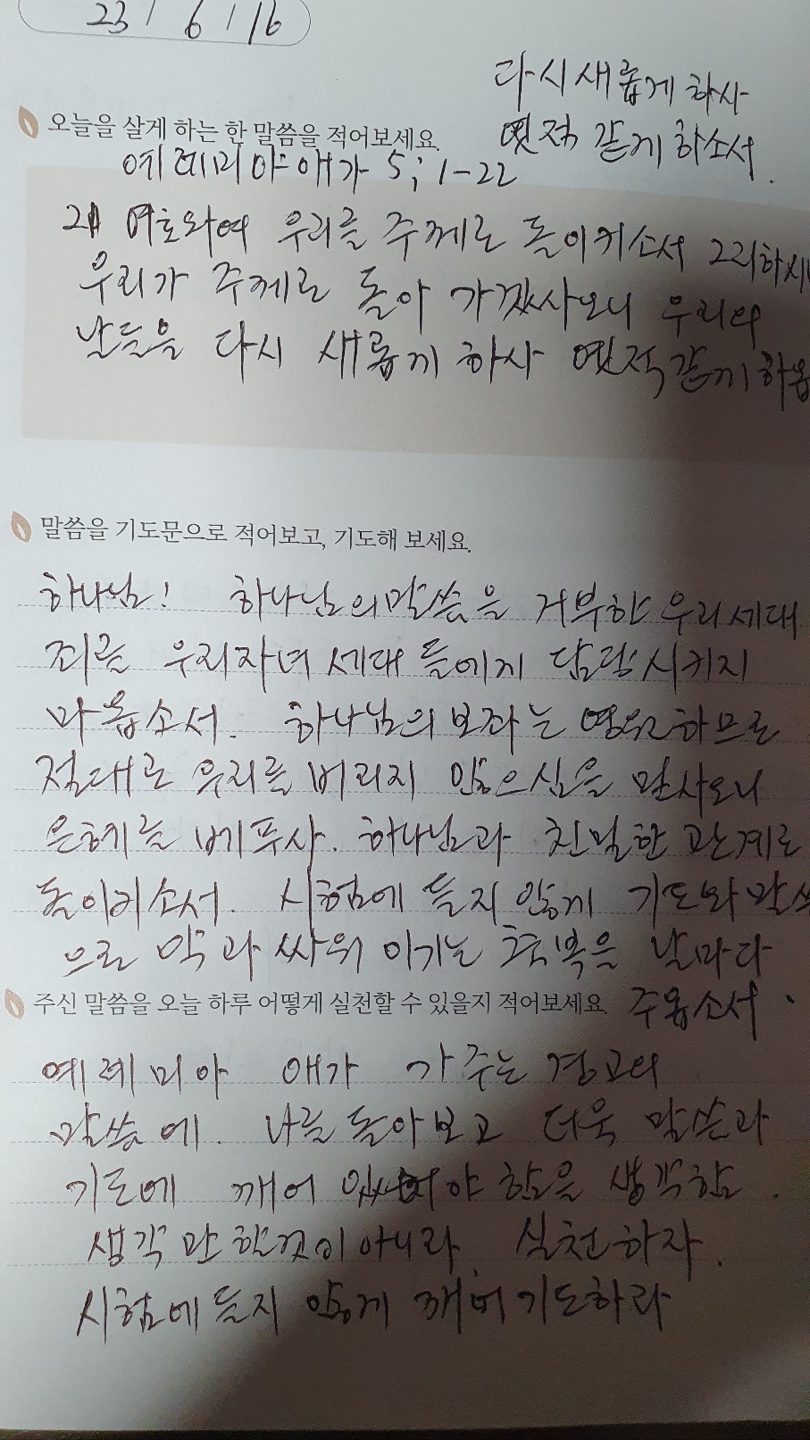 23 / 6 / 16
다시 새롭게 하사
옛적 같게 하소서.
오늘을 살게 하는 한 말씀을 적어보세요.
예레미야애가 5; 1-22
21 여호와여 우리를 주께로 돌이키소서 그리하시
우리가 주께로 돌아 가겠사오니 우리의
날들을 다시 새롭게 하사 옛적같게 하옵
말씀을 기도문으로 적어보고, 기도해 보세요.
하나님! 하나님의 말씀을 거부한 우리세대
죄를 우리자녀 세대 들에게 담당시키지
마옵소서. 하나님의 보좌는 영원하므로
절대로 우리를 버리지 않으심을 믿사오니
은혜를 베푸사. 하나님과 친밀한 관계로
돌이키소서. 시험에 들지 않게 기도와 말씀
으로 악과 싸워 이기는 축복을 날마다
주신 말씀을 오늘 하루 어떻게 실천할 수 있을지 적어보세요.
주옵소서.
예레미야 애가 가 주는 경고의
말씀에. 나를 돌아보고 더욱 말씀과
기도에 깨어 있어야 함을 생각함.
생각만 할것이 아니라 실천하자.
시험에 들지 않게 깨어 기도하라